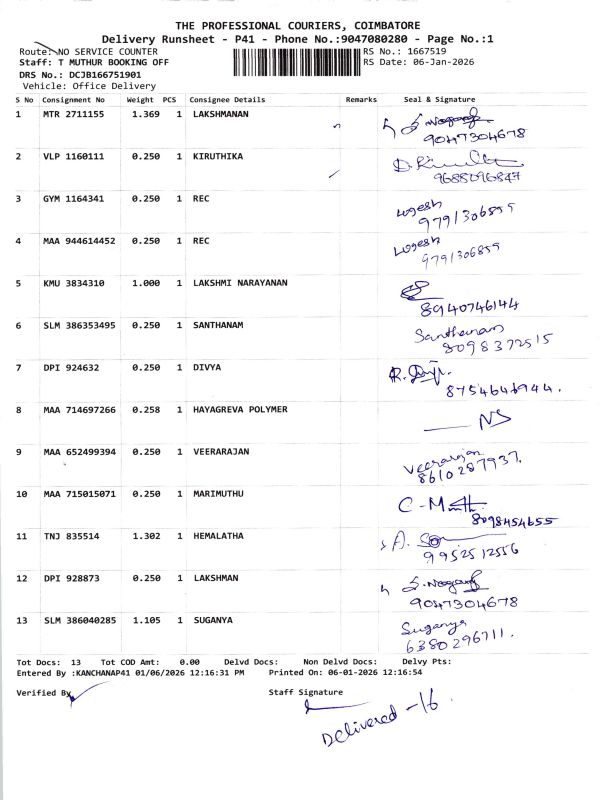 THE PROFESSIONAL COURIERS, COIMBATORE
Delivery Runsheet - P41 - Phone No.:9047080280 - Page No.:1
Route: NO SERVICE COUNTER RS No.: 1667519
Staff: T MUTHUR BOOKING OFF RS Date: 06-Jan-2026
DRS No.: DCJB166751901
Vehicle: Office Delivery
S No Consignment No Weight PCS Consignee Details Remarks Seal & Signature
1 MTR 2711155 1.369 1 LAKSHMANAN
9047304678
2 VLP 1160111 0.250 1 KIRUTHIKA
9688096847
3 GYM 1164341 0.250 1 REC Logesh
9791306855
4 MAA 944614452 0.250 1 REC Logesh
9791306855
5 KMU 3834310 1.000 1 LAKSHMI NARAYANAN
8940746144
6 SLM 386353495 0.250 1 SANTHANAM Santhanam
8098372515
7 DPI 924632 0.250 1 DIVYA
8754646944.
8 MAA 714697266 0.258 1 HAYAGREVA POLYMER — NS
9 MAA 652499394 0.250 1 VEERARAJAN Veerarajan
8610287937.
10 MAA 715015071 0.250 1 MARIMUTHU
8098454655
11 TNJ 835514 1.302 1 HEMALATHA
9952512556
12 DPI 928873 0.250 1 LAKSHMAN
9047304678
13 SLM 386040285 1.105 1 SUGANYA Suganya
6380296711.
Tot Docs: 13 Tot COD Amt: 0.00 Delvd Docs: Non Delvd Docs: Delvy Pts:
Entered By :KANCHANAP41 01/06/2026 12:16:31 PM Printed On: 06-01-2026 12:16:54
Verified By Staff Signature
Delivered - 16.